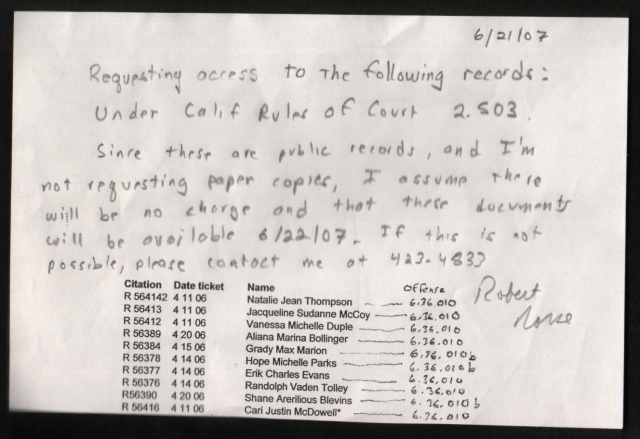 6/21/07
Requesting access to the following records:
Under Calif Rules of Court 2.503.
Since these are public records, and I'm
not requesting paper copies, I assume there
will be no charge and that these documents
will be available 6/22/07. If this is not
possible, please contact me at 423-4833
Robert
Norse
Citation Date ticket Name Offense
R 564142 4 11 06 Natalie Jean Thompson 6.36.010
R 56413 4 11 06 Jacqueline Sudanne McCoy 6.36.010
R 56412 4 11 06 Vanessa Michelle Duple 6.36.010
R 56389 4 20 06 Aliana Marina Bollinger 6.36.010
R 56384 4 15 06 Grady Max Marion 6.36.010b
R 56378 4 14 06 Hope Michelle Parks 6.36.010b
R 56377 4 14 06 Erik Charles Evans 6.36.010
R 56376 4 14 06 Randolph Vaden Tolley 6.36.010
R56390 4 20 06 Shane Arerilious Blevins 6.36.010b
R 56416 4 11 06 Cari Justin McDowell* 6.36.010